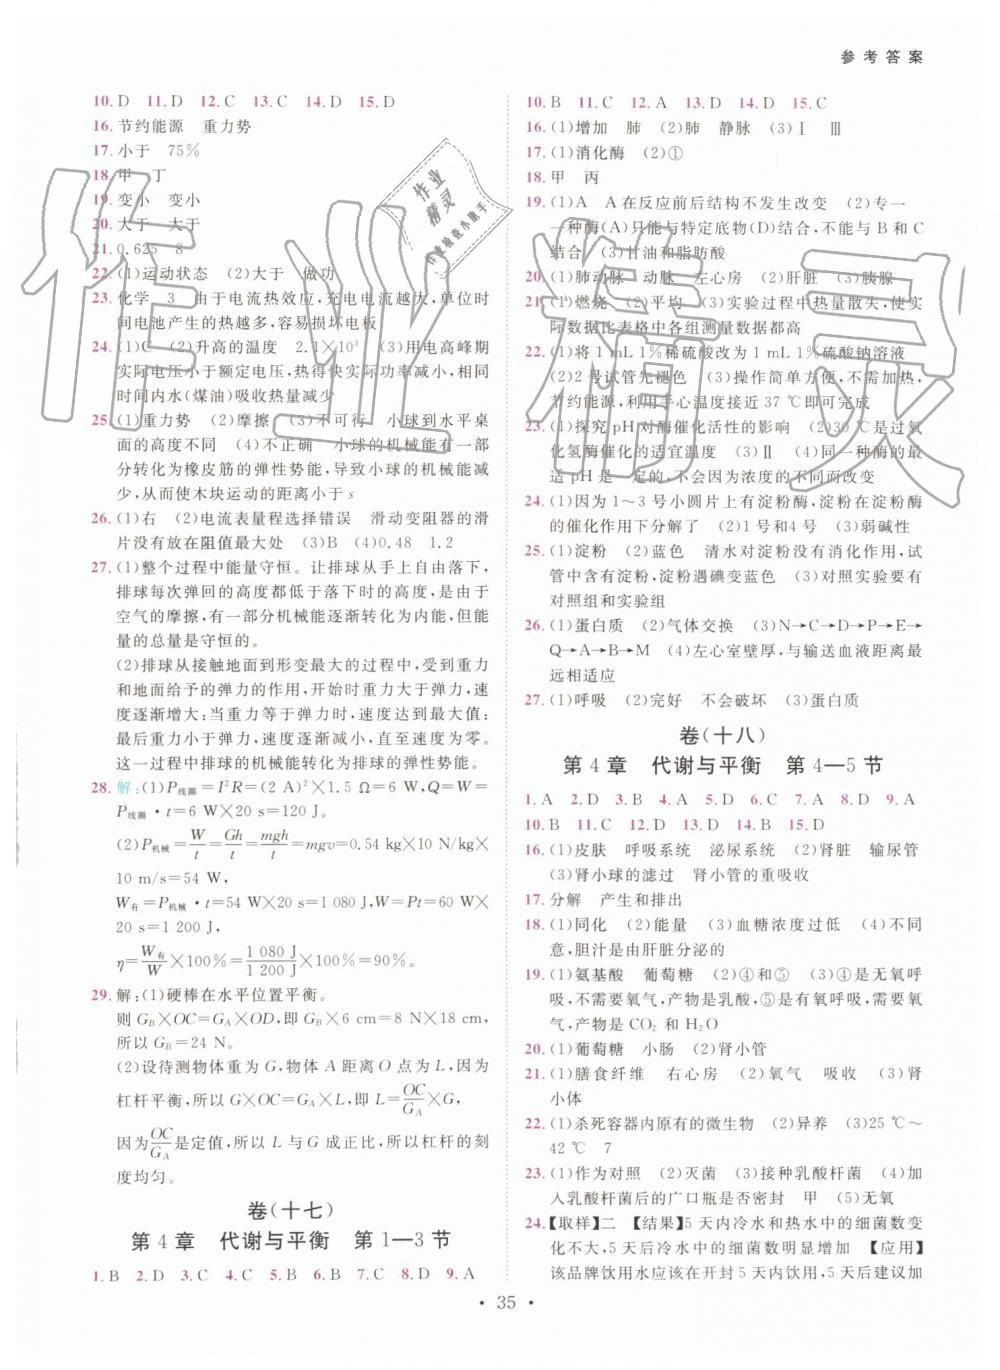 参考答案
10. D 11. D 12. C 13. C 14. D 15. D
16. 节约能源 重力势
17. 小于 75%
18. 甲 丁
19. 变小 变小
20. 大于 大于
21. 0.625 8
22. (1)运动状态 (2)大于 做功
23. 化学 3 由于电流热效应,充电电流越大,单位时
间电池产生的热越多,容易损坏电板
24. (1)C (2)升高的温度 2.1×10³ (3)用电高峰期
实际电压小于额定电压,热得快实际功率减小,相
同时间内水(煤油)吸收热量减少
25. (1)重力势 (2)摩擦 (3)不可行 小球到水平桌
面的高度不同 (4)不正确 小球的机械能有一部
分转化为橡皮筋的弹性势能,导致小球的机械能减
少,从而使木块运动的距离小于 s
26. (1)右 (2)电流表量程选择错误 滑动变阻器的滑
片没有放在阻值最大处 (3)B (4)0.48 1.2
27. (1)整个过程中能量守恒。让排球从手上自由落下,
排球每次弹回的高度都低于落下时的高度,是由于
空气的摩擦,有一部分机械能逐渐转化为内能,但能
量的总量是守恒的。
(2)排球从接触地面到形变最大的过程中,受到重力
和地面给予的弹力的作用,开始时重力大于弹力,速
度逐渐增大;当重力等于弹力时,速度达到最大值;
最后重力小于弹力,速度逐渐减小,直至速度为零。
这一过程中排球的机械能转化为排球的弹性势能。
28. 解:(1)P线圈=I²R=(2 A)²×1.5 Ω=6 W,Q=W=
P线圈·t=6 W×20 s=120 J。
(2)P机械=W/t=Gh/t=mgh/t=mgv=0.54 kg×10 N/kg×
10 m/s=54 W,
W有=P机械·t=54 W×20 s=1 080 J,W=Pt=60 W×
20 s=1 200 J,
η=W有/W×100%=1 080 J/1 200 J×100%=90%。
29. 解:(1)硬棒在水平位置平衡。
则 GB×OC=GA×OD,即 GB×6 cm=8 N×18 cm,
所以 GB=24 N。
(2)设待测物体重为 G,物体 A 距离 O 点为 L,因为
杠杆平衡,所以 G×OC=GA×L,即 L=OC/GA×G,
因为OC/GA是定值,所以 L 与 G 成正比,所以杠杆的刻
度均匀。
卷(十七)
第 4 章 代谢与平衡 第 1—3 节
1. B 2. D 3. C 4. C 5. B 6. B 7. C 8. D 9. A
10. B 11. C 12. A 13. D 14. D 15. C
16. (1)增加 肺 (2)肺 静脉 (3)Ⅰ Ⅲ
17. (1)消化酶 (2)①
18. 甲 丙
19. (1)A A 在反应前后结构不发生改变 (2)专一
一种酶(A)只能与特定底物(D)结合,不能与 B 和 C
结合 (3)甘油和脂肪酸
20. (1)肺动脉 动脉 左心房 (2)肝脏 (3)胰腺
21. (1)燃烧 (2)平均 (3)实验过程中热量散失,使实
际数据比表格中各组测量数据都高
22. (1)将 1 mL 1%稀硫酸改为 1 mL 1%硫酸钠溶液
(2)2 号试管先褪色 (3)操作简单方便,不需加热,
节约能源,利用手心温度接近 37 ℃即可完成
23. (1)探究 pH 对酶催化活性的影响 (2)30 ℃是过氧
化氢酶催化的适宜温度 (3)Ⅱ (4)两种酶的最
适 pH 是一定的,不会因为浓度的不同而改变
24. (1)因为 1～3 号小圆片上有淀粉酶,淀粉在淀粉酶
的催化作用下分解了 (2)1 号和4 号 (3)弱碱性
25. (1)淀粉 (2)蓝色 清水对淀粉没有消化作用,试
管中含有淀粉,淀粉遇碘变蓝色 (3)对照实验要有
对照组和实验组
26. (1)蛋白质 (2)气体交换 (3)N→C→D→P→E→
Q→A→B→M (4)左心室壁厚,与输送血液距离最
远相适应
27. (1)呼吸 (2)完好 不会破坏 (3)蛋白质
卷(十八)
第 4 章 代谢与平衡 第 4—5 节
1. A 2. D 3. B 4. A 5. D 6. C 7. A 8. D 9. A
10. B 11. C 12. D 13. D 14. B 15. D
16. (1)皮肤 呼吸系统 泌尿系统 (2)肾脏 输尿管
(3)肾小球的滤过 肾小管的重吸收
17. 分解 产生和排出
18. (1)同化 (2)能量 (3)血糖浓度过低 (4)不同
意,胆汁是由肝脏分泌的
19. (1)氨基酸 葡萄糖 (2)④和⑤ (3)④是无氧呼
吸,不需要氧气,产物是乳酸,⑤是有氧呼吸,需要氧
气,产物是 CO₂ 和 H₂O
20. (1)葡萄糖 小肠 (2)肾小管
21. (1)膳食纤维 右心房 (2)氧气 吸收 (3)肾
小体
22. (1)杀死容器内原有的微生物 (2)异养 (3)25 ℃～
42 ℃ 7
23. (1)作为对照 (2)灭菌 (3)接种乳酸杆菌 (4)加
入乳酸杆菌后的广口瓶是否密封 甲 (5)无氧
24. 【取样】二 【结果】5 天内冷水和热水中的细菌数变
化不大,5 天后冷水中的细菌数明显增加 【应用】
该品牌饮用水应该在开封 5 天内饮用,5 天后建议加
• 35 •
作业精灵
作业精灵
作业检查小助手